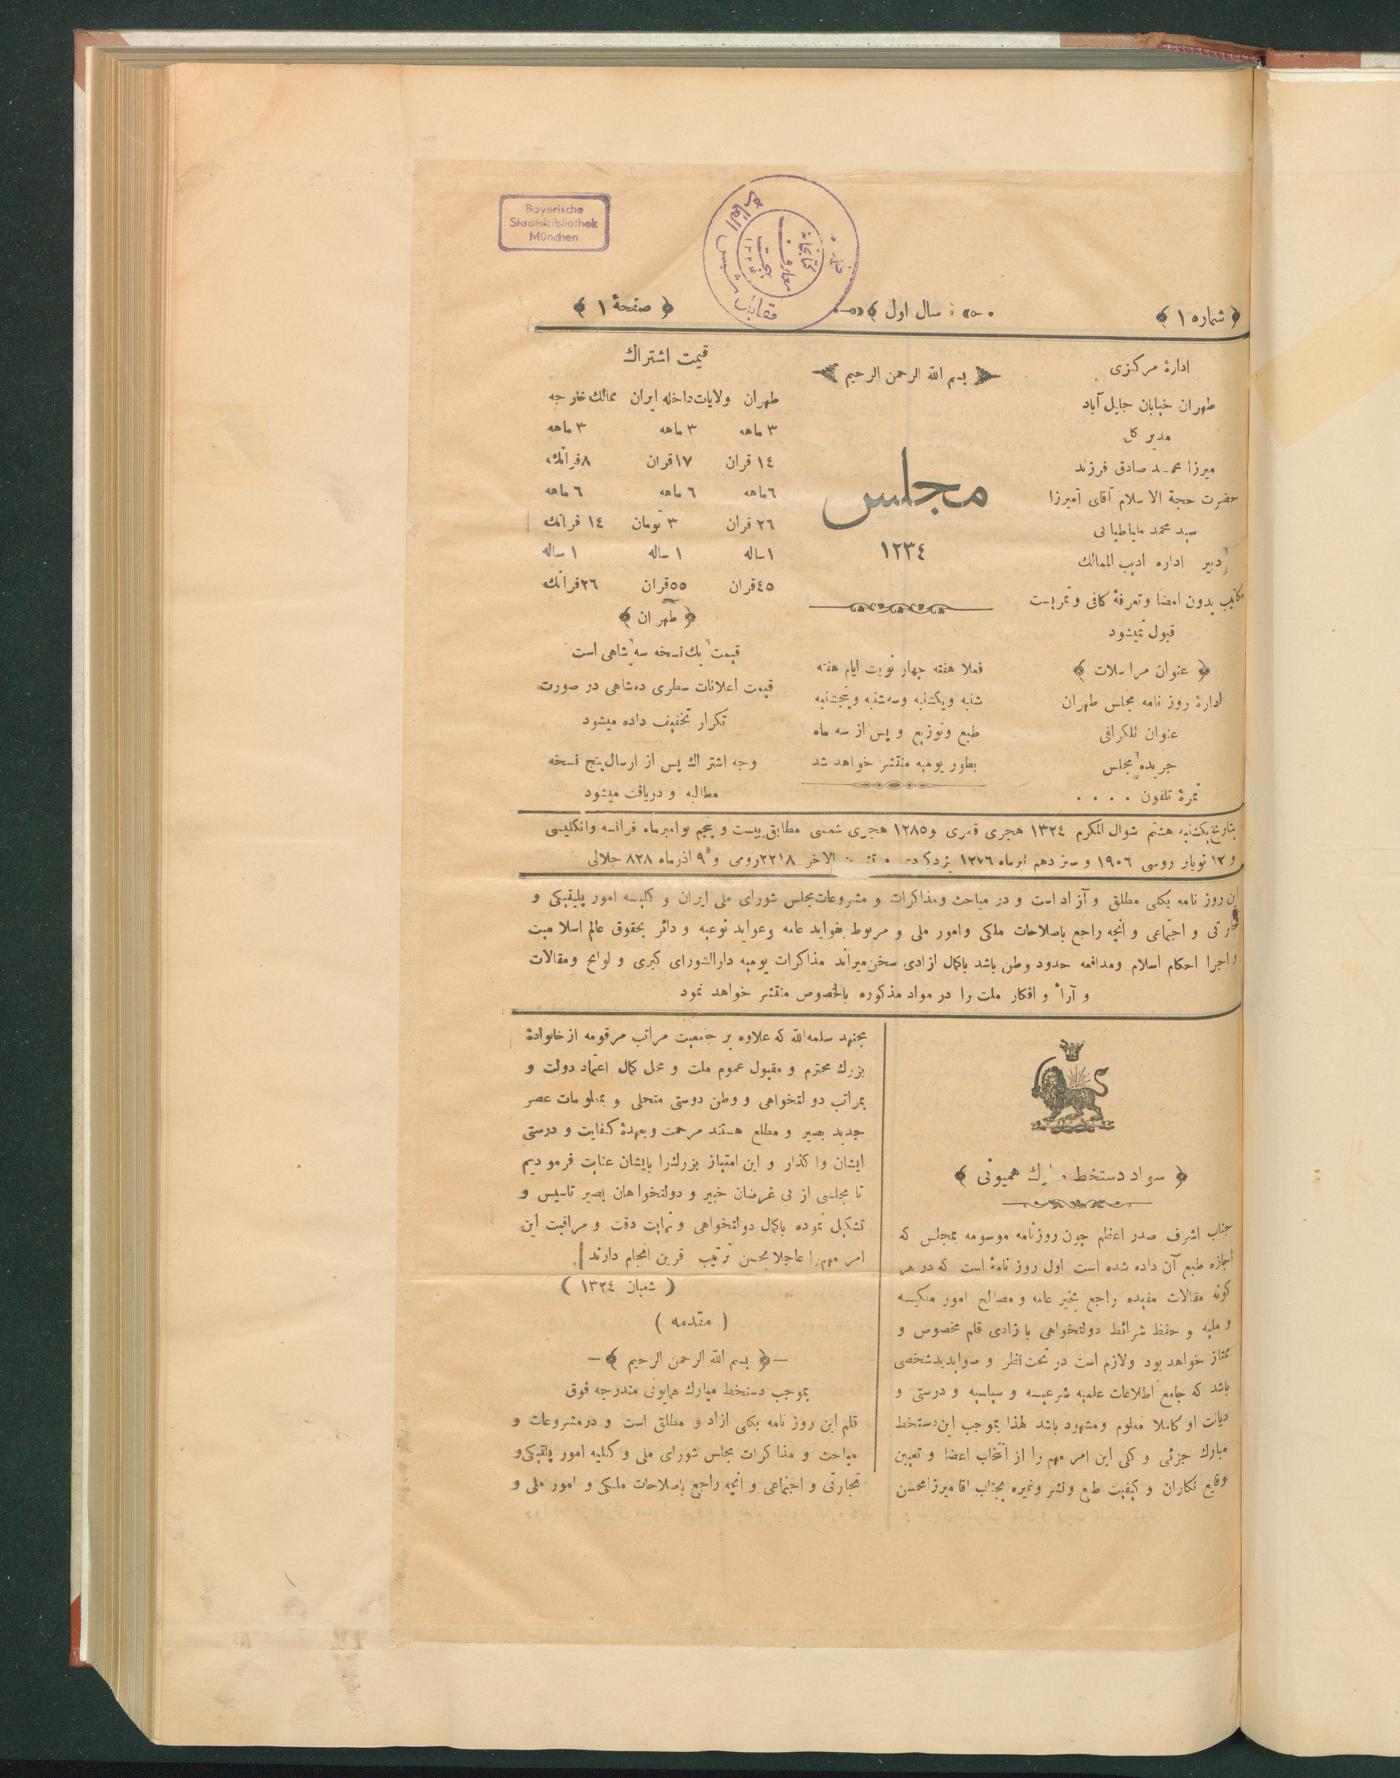 Bayerische
Staatsbibliothek
München
﴿ شماره ۱ ﴾
سال اول
﴿ صفحهٔ ۱ ﴾
ادارهٔ مرکزی
طهران خیابان جلیل آباد
مدیر کل
میرزا محمد صادق فرزند
حضرت حجة الاسلام آقای آمیرزا
سید محمد طباطبائی
دبیر اداره ادیب الممالک
مکاتیب بدون امضا و تعرفهٔ کافی و تمرپست
قبول نمیشود
﴿ عنوان مراسلات ﴾
ادارهٔ روز نامه مجلس طهران
عنوان تلگرافی
جریدهٔ مجلس
نمرهٔ تلفون . . . .
بسم الله الرحمن الرحیم
مجلس
۱۲۳٤
فعلا هفته چهار نوبت ایام هفته
شنبه ویکشنبه وسه‌شنبه وپنجشنبه
طبع وتوزیع و پس از سه ماه
بطور یومیه منتشر خواهد شد
قیمت اشتراك
طهران ولایات‌داخله ایران ممالك‌خارجه
۳ ماهه ۳ ماهه ۳ ماهه
۱٤ قران ۱۷ قران ۸ فرانك
٦ ماهه ٦ ماهه ٦ ماهه
۲٦ قران ۳ تومان ۱٤ فرانك
۱ ساله ۱ ساله ۱ ساله
٤٥ قران ٥٥ قران ۲٦ فرانك
﴿ طهران ﴾
قیمت یك نسخه سه شاهی است
قیمت اعلانات سطری ده‌شاهی در صورت
تکرار تخفیف داده میشود
وجه اشتراك پس از ارسال پنج نسخه
مطالبه و دریافت میشود
بتاریخ یکشنبه هشتم شوال المکرم ۱۳۲٤ هجری قمری و ۱۲۸٥ هجری شمسی مطابق بیست و پنجم نوامبرماه فرانسه وانگلیسی
و ۱۲ نویابر روسی ۱۹۰٦ و سیزدهم تیرماه ۱۲۷٦ یزدگردی الاخر ۲۲۱۸ رومی و ۹ اذرماه ۸۲۸ جلالی
این روز نامه بکلی مطلق و آزاد است و در مباحث ومذاکرات و مشروعات مجلس شورای ملی ایران و کلیه امور پلیتیکی و
تجارتی و اجتماعی و انچه راجع باصلاحات ملکی وامور ملی و مربوط بفواید عامه وعواید نوعیه و دائر بحقوق عالم اسلامیت
و اجرا احکام اسلام ومدافعه حدود وطن باشد باکمال ازادی سخن میراند مذاکرات یومیه دارالشورای کبری و لوایح ومقالات
و آراء و افکار ملت را در مواد مذکوره بالخصوص منتشر خواهد نمود
﴿ سواد دستخط مبارك همیونی ﴾
جناب اشرف صدر اعظم چون روزنامه موسومه بمجلس که
اجازه طبع آن داده شده است اول روز نامهٔ است که در هر
کونه مقالات مفیده راجع بخیر عامه و مصالح امور ملکیه
و ملیه و حفظ شرائط دولتخواهی با زادی قلم مخصوص و
ممتاز خواهد بود ولازم است در تحت نظر و صوابدید شخصی
باشد که جامع اطلاعات علمیه شرعیه و سیاسیه و درستی و
دیانت او کاملا معلوم ومشهود باشد لهذا بموجب این دستخط
مبارك جزئی و کلی این امر مهم را از انتخاب اعضا و تعیین
وقایع نکاران و کیفیت طبع ونشر وغیره بجناب اقا میرزا محسن
مجتهد سلمه‌الله که علاوه بر جامعیت مراتب مرقومه از خانوادهٔ
بزرك محترم و مقبول عموم ملت و محل کمال اعتماد دولت و
بمراتب دولتخواهی و وطن دوستی متحلی و بمعلومات عصر
جدید بصیر و مطلع هستند مرحمت وبعهدهٔ کفایت و درستی
ایشان واگذار و این امتیاز بزرك را بایشان عنایت فرمودیم
تا مجلسی از بی غرضان خبیر و دولتخواهان بصیر تاسیس و
تشکیل نموده باکمال دولتخواهی و نهایت دقت و مراقبت این
امر مهم را عاجلا بحسن ترتیب قرین انجام دارند
( شعبان ۱۳۲٤ )
( مقدمه )
﴿ بسم الله الرحمن الرحیم ﴾
بموجب دستخط مبارك همایونی مندرجه فوق
قلم این روز نامه بکلی ازاد و مطلق است و درمشروعات و
مباحث و مذاکرات مجلس شورای ملی و کلیه امور پلتیکی و
تجارتی و اجتماعی و انچه راجع باصلاحات ملکی و امور ملی و